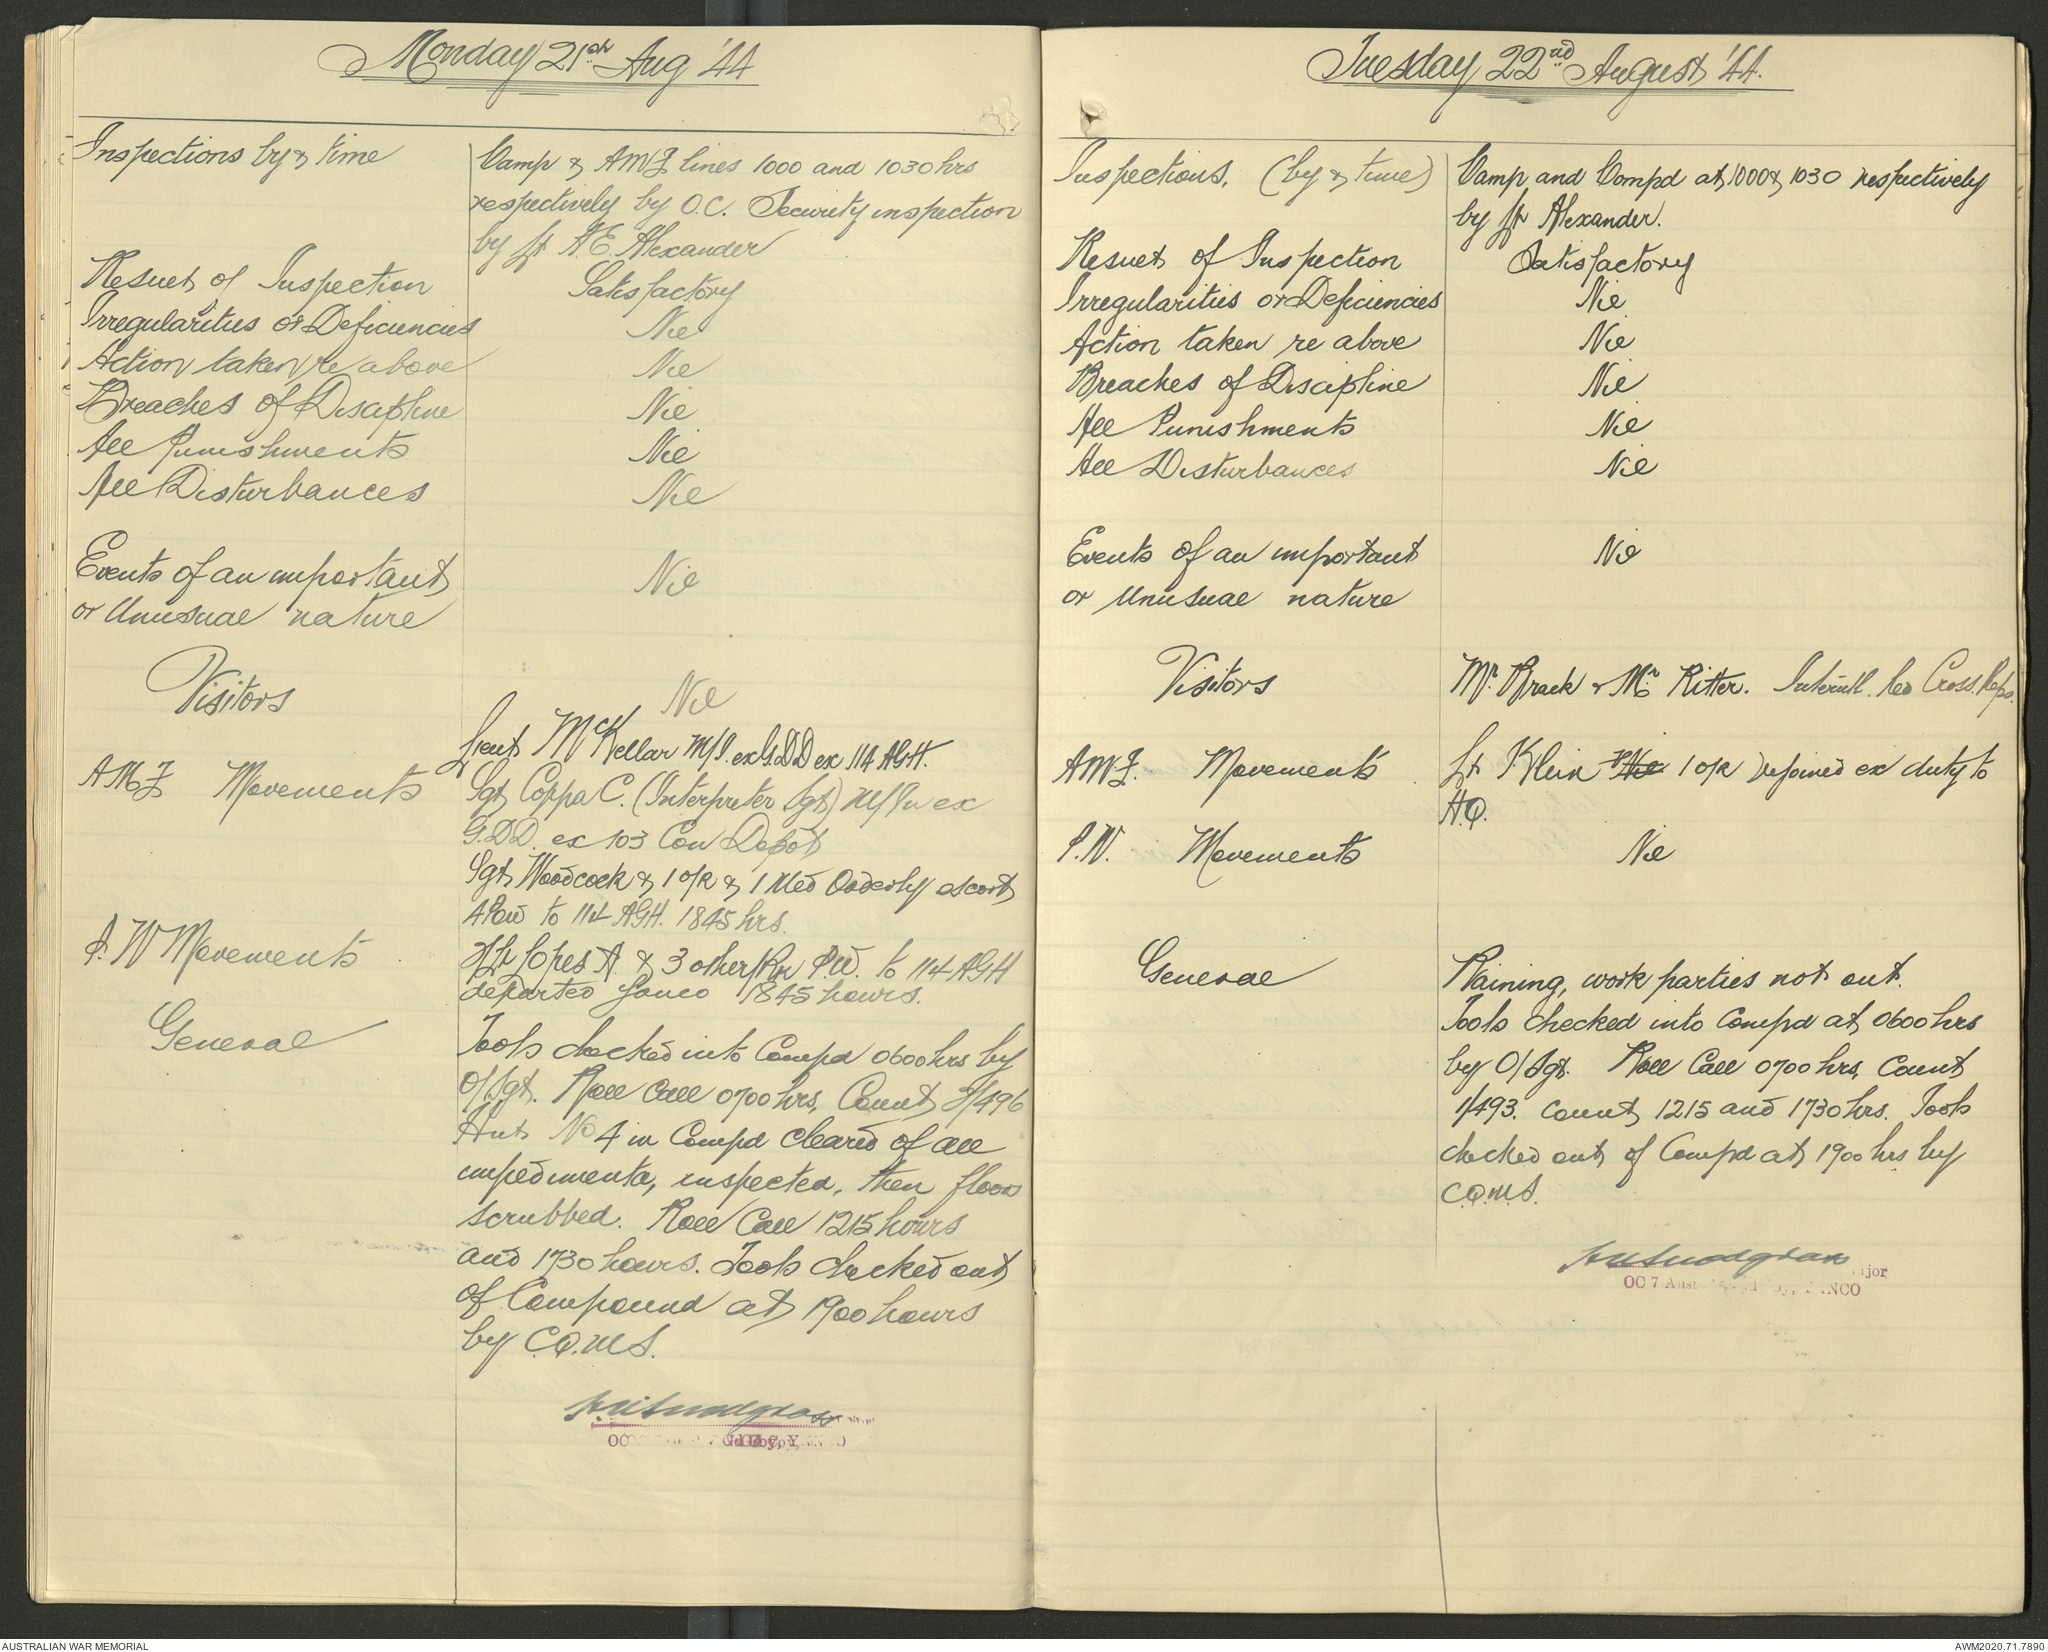 Monday 21st Aug '44
Inspections by & time
Camp & AMF lines 1000 and 1030 hrs
respectively by O.C. Security inspection
by Lt A.E. Alexander
Result of Inspection Satisfactory
Irregularities or Deficiencies Nil
Action taken re above Nil
Breaches of Discipline Nil
All Punishments Nil
All Disturbances Nil
Events of an important Nil
or Unusual nature
Visitors Nil
Lieut McKellar M/I. ex G.D.D ex 114 AGH.
AMF Movements Sgt Coppa C. (Interpreter Sgt) M/In ex
G.D.D. ex 103 Con Depot
Sgt Woodcock & 1 o/R & 1 Med Orderly escort
4 Pow to 114 AGH. 1845 hrs.
P.W Movements Lopes A. & 3 other P.W. to 114 AGH
departed Yanco 1845 hours.
General
Tools checked into Compd 0600 hrs by
O/Sgt. Roll Call 0700 hrs, Count 1/496
Hut No 4 in Compd cleared of all
impedimenta, inspected, then floor
scrubbed. Roll Call 1215 hours
and 1730 hours. Tools checked out
of Compound at 1900 hours
by C.Q.M.S.
OC
Tuesday 22nd August '44.
Inspections. (by & time) Camp and Compd at 1000 & 1030 respectively
by Lt Alexander.
Result of Inspection Satisfactory
Irregularities or Deficiencies Nil
Action taken re above Nil
Breaches of Discipline Nil
All Punishments Nil
All Disturbances Nil
Events of an important Nil
or Unusual nature
Visitors Mr. & Mr. Ritter. Interntl. Red Cross. Reps.
AMF. Movements Lt Klein 1 o/R rejoined ex duty to
H.Q.
P.W. Movements Nil
General Raining, work parties not out.
Tools checked into Compd at 0600 hrs
by O/Sgt. Roll Call 0700 hrs, Count
1/493. Count, 1215 and 1730 hrs. Tools
checked out of Compd at 1900 hrs by
C.Q.M.S.
OC 7 Aust
AUSTRALIAN WAR MEMORIAL
AWM2020.71.7890